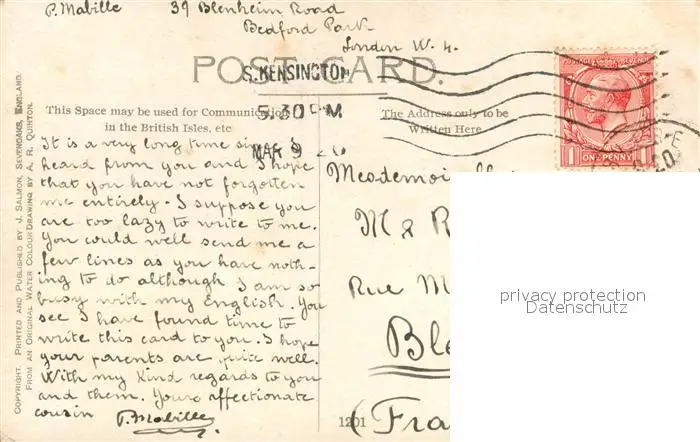 P. Mabille 39 Blenheim Road
Bedford Park
London W. 4.
POST CARD.
S. KENSINGTON
5.30 PM
MAR 9
POSTAGE REVENUE
1 ONE PENNY 1
This Space may be used for Communication
in the British Isles, etc
The Address only to be
Written Here
It is a very long time since I
heard from you and I hope
that you have not forgotten
me entirely. I suppose you
are too lazy to write to me.
You could well send me a
few lines as you have noth-
ing to do although I am so
busy with my English. You
see I have found time to
write this card to you. I hope
your parents are quite well.
With my kind regards to you
and them. Yours affectionate
cousin P. Mabille.
Meademoi
M & R
Rue M
Ble
(Fra
1201
COPYRIGHT. PRINTED AND PUBLISHED BY J. SALMON, SEVENOAKS, ENGLAND.
FROM AN ORIGINAL WATER COLOUR DRAWING BY A. R. QUINTON.
privacy protection
Datenschutz